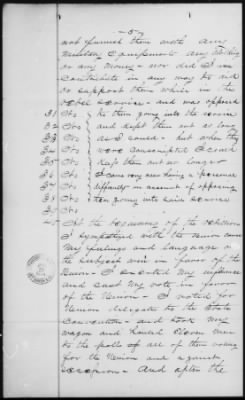 -5-
not furnish them with any
military equipments any clothing
or any money - nor did I
contribute in any way to aid
or support them while in the
rebel service - and was opposed
31 Ans to their going into the service
32 Ans and kept them out as long
33 Ans as I could - but when they
34 Ans were conscripted I could
35 Ans keep them out no longer
36 Ans I came very near having a personal
37 Ans difficulty on account of opposing
38 Ans them going into said service
39 Ans
40 At the beginning of the rebellion
I sympathized with the union cause
My feelings and language on
the subject were in favor of the
Union - I exerted my influence
and cast my vote in favor
of the Union - I voted for
Union delegates to the State
Convention - and took my
wagon and hauled eleven men
to the polls all of them voting
for the Union and against
secession - And after the